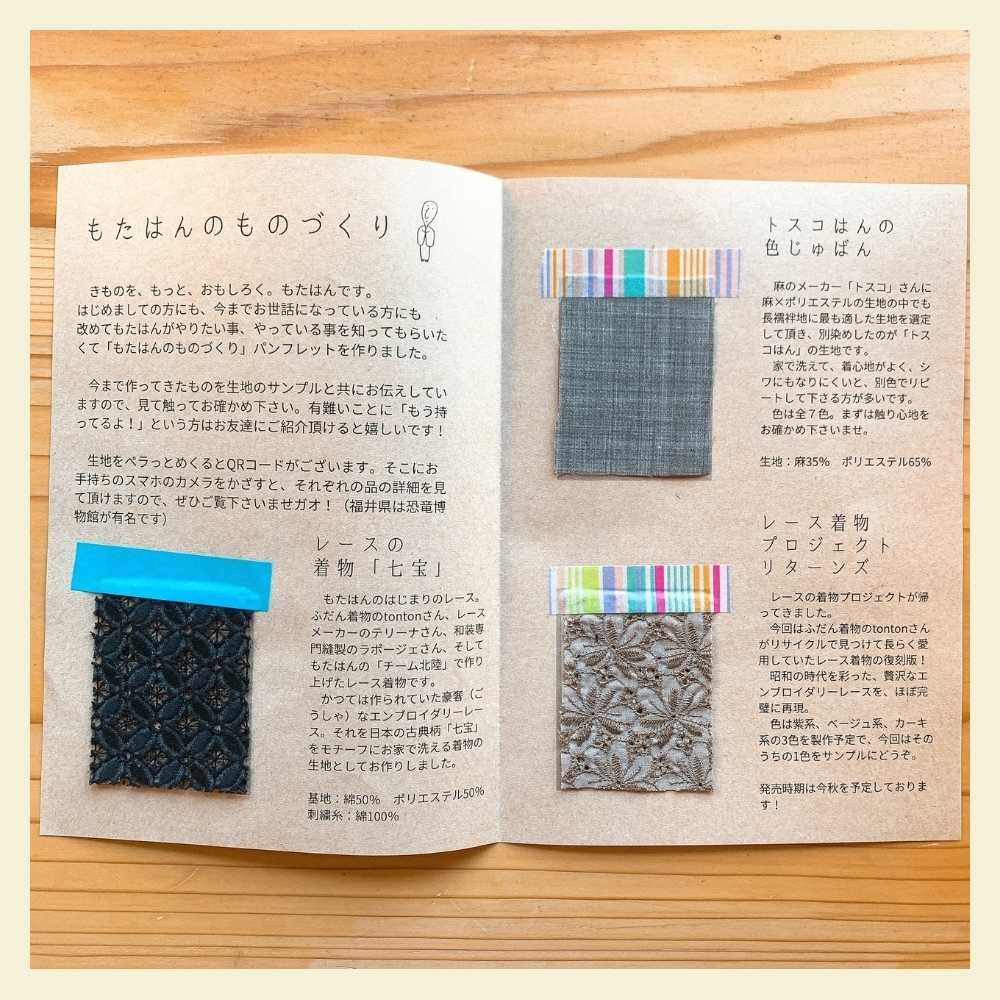 もたはんのものづくり
きものを、もっと、おもしろく。もたはんです。
はじめましての方にも、今までお世話になっている方にも
改めてもたはんがやりたい事、やっている事を知ってもらいた
くて「もたはんのものづくり」パンフレットを作りました。
今まで作ってきたものを生地のサンプルと共にお伝えしてい
ますので、見て触ってお確かめ下さい。有難いことに「もう持
ってるよ！」という方はお友達にご紹介頂けると嬉しいです！
生地をペラっとめくるとQRコードがございます。そこにお
手持ちのスマホのカメラをかざすと、それぞれの品の詳細を見
て頂けますので、ぜひご覧下さいませガオ！（福井県は恐竜博
物館が有名です）
レースの
着物「七宝」
もたはんのはじまりのレース。
ふだん着物のtontonさん、レース
メーカーのテリーナさん、和装専
門縫製のラポージェさん、そして
もたはんの「チーム北陸」で作り
上げたレース着物です。
かつては作られていた豪奢（ご
うしゃ）なエンブロイダリーレー
ス。それを日本の古典柄「七宝」
をモチーフにお家で洗える着物の
生地としてお作りしました。
基地：綿50%　ポリエステル50%
刺繍糸：綿100%
トスコはんの
色じゅばん
麻のメーカー「トスコ」さんに
麻×ポリエステルの生地の中でも
長襦袢地に最も適した生地を選定
して頂き、別染めしたのが「トス
コはん」の生地です。
家で洗えて、着心地がよく、シ
ワにもなりにくいと、別色でリピ
ートして下さる方が多いです。
色は全７色。まずは触り心地を
お確かめ下さいませ。
生地：麻35%　ポリエステル65%
レース着物
プロジェクト
リターンズ
レースの着物プロジェクトが帰
ってきました。
今回はふだん着物のtontonさん
がリサイクルで見つけて長らく愛
用していたレース着物の復刻版！
昭和の時代を彩った、贅沢なエ
ンブロイダリーレースを、ほぼ完
璧に再現。
色は紫系、ベージュ系、カーキ
系の3色を製作予定で、今回はその
うちの1色をサンプルにどうぞ。
発売時期は今秋を予定しておりま
す！